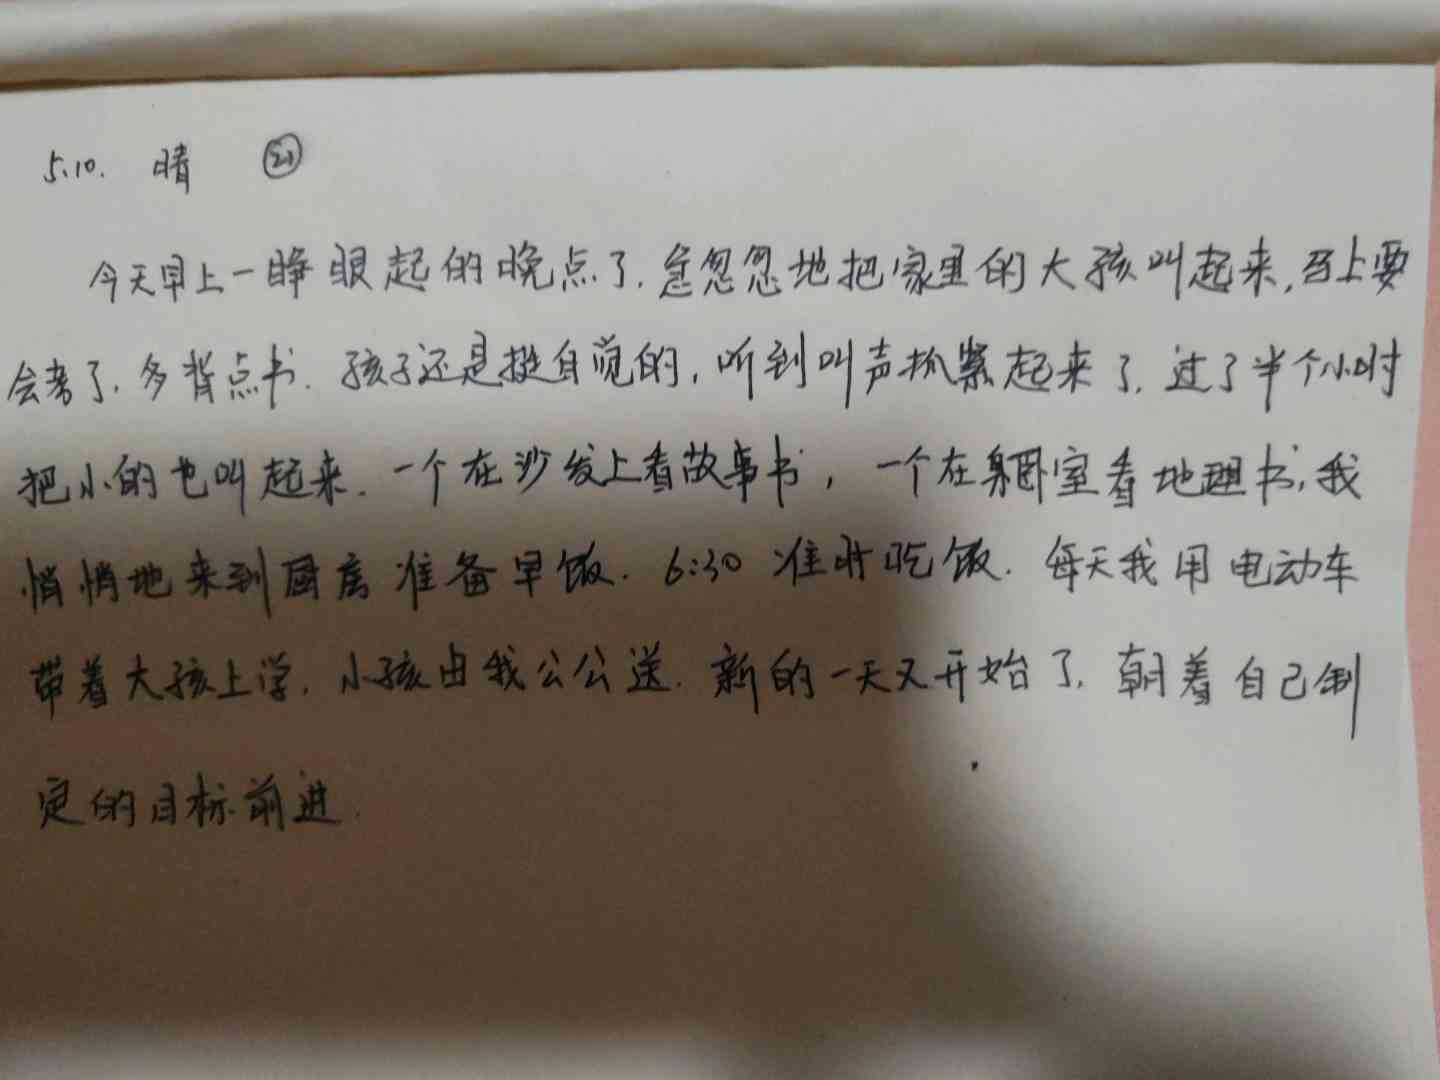 5.10. 晴 ㉑
今天早上一睁眼起的晚点了.急忽忽地把家里的大孩叫起来,马上要
会考了.多背点书.孩子还是挺自觉的,听到叫声抓紧起来了.过了半个小时
把小的也叫起来.一个在沙发上看故事书,一个在卧室看地理书,我
悄悄地来到厨房准备早饭.6:30准时吃饭.每天我用电动车
带着大孩上学.小孩由我公公送.新的一天又开始了.朝着自己制
定的目标前进.